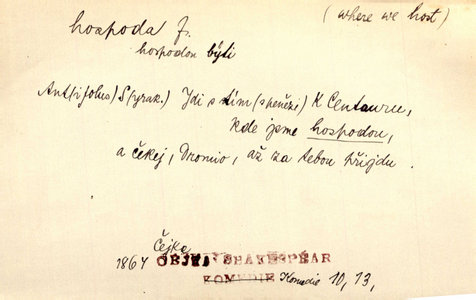 hospoda f.
(where we host)
hospodou býti
Ant(ifolus) S(yrak.) Jdi s tím (s penězi) K Centauru,
kde jsme hospodou,
a čekej, Dromio, až za tebou přijdu.
Čejka
1864 SHAKESPEAR
KOMEDIE Komedie 10, 13,